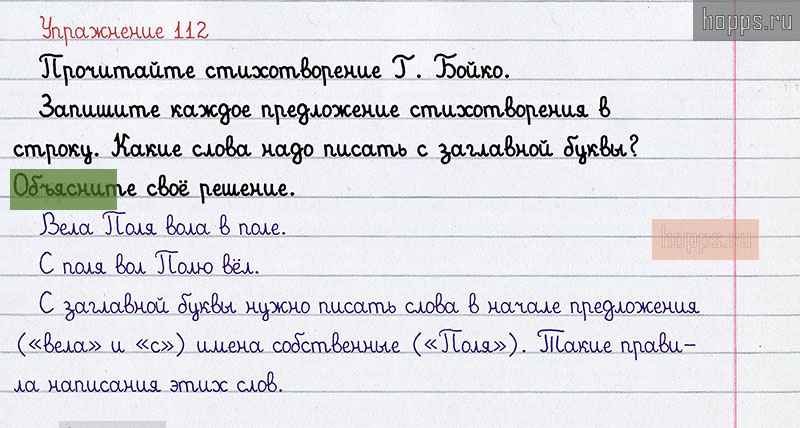 hopps.ru
Упражнение 112
Прочитайте стихотворение Г. Бойко.
Запишите каждое предложение стихотворения в
строку. Какие слова надо писать с заглавной буквы?
Объясните своё решение.
Вела Поля вола в поле.
hopps.ru
С поля вол Полю вёл.
С заглавной буквы нужно писать слова в начале предложения
(«вела» и «с») имена собственные («Поля»). Такие прави-
ла написания этих слов.